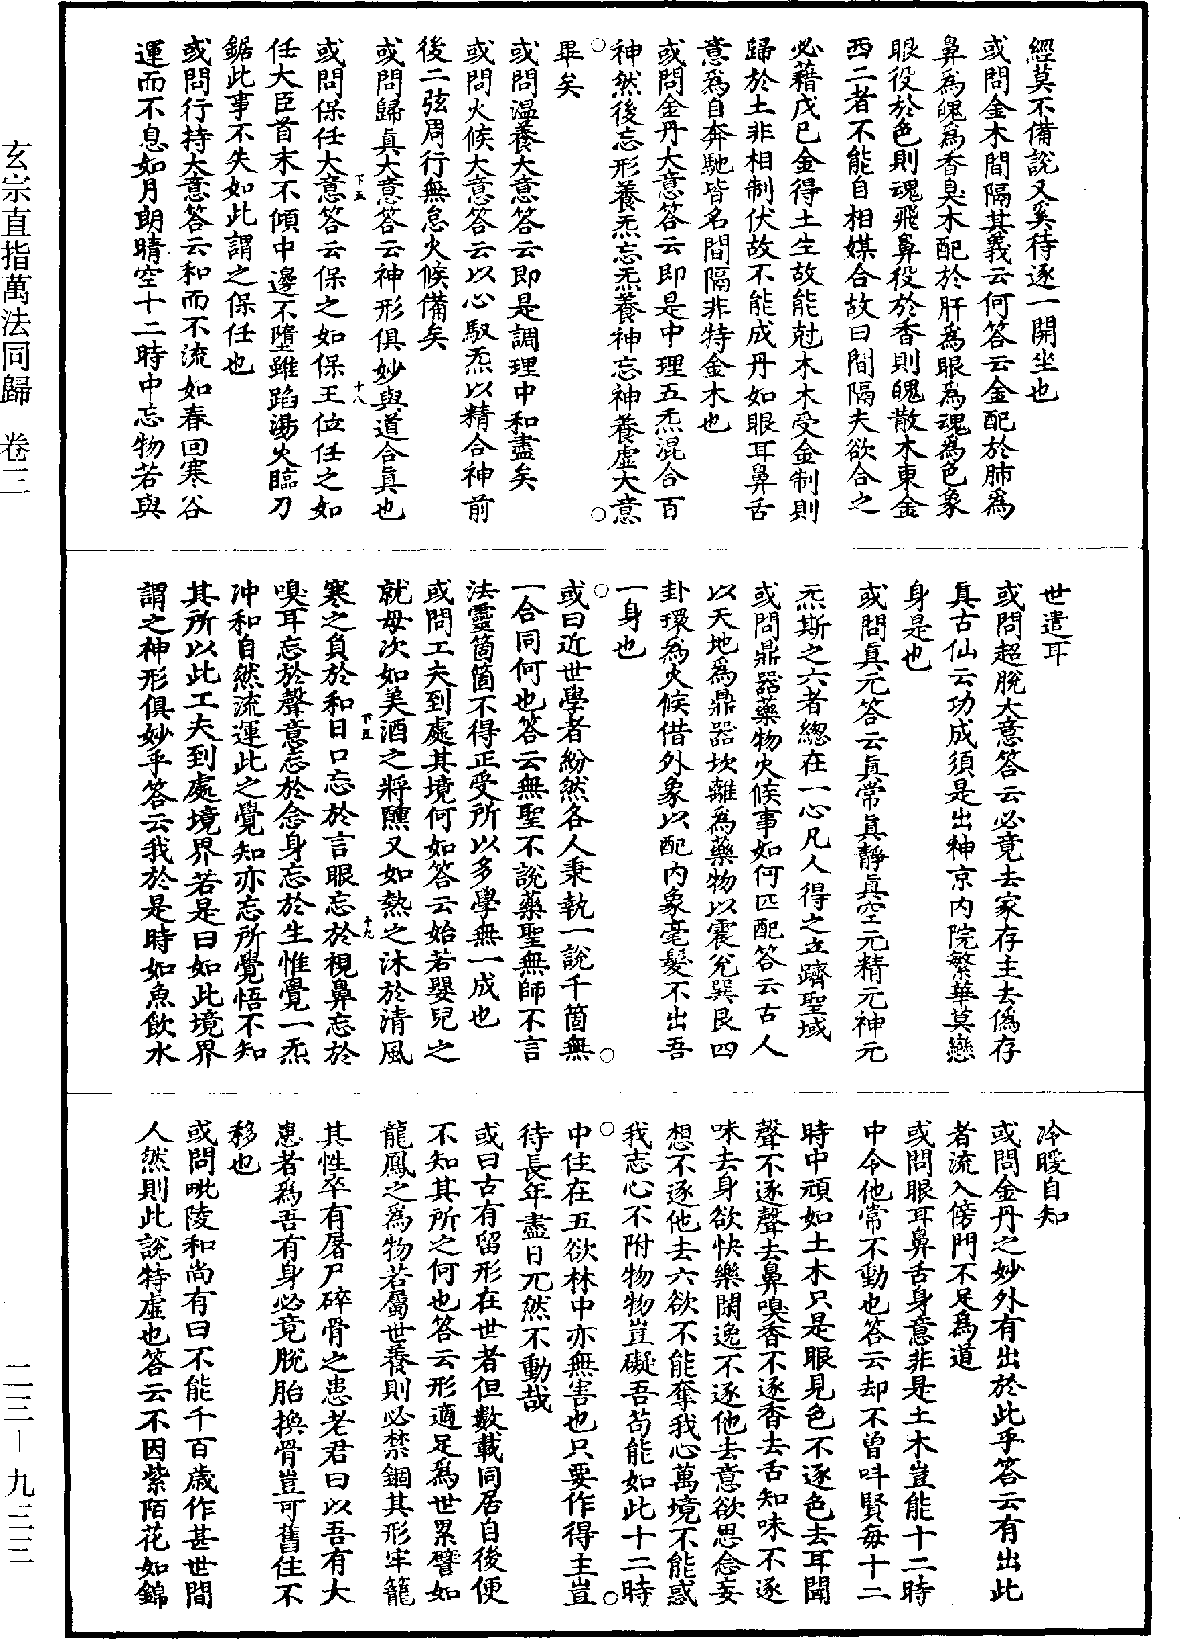 經莫不備說又奚待逐一開坐也
或問金木間隔其義云何答云金配於肺為
鼻為魄為香臭木配於肝為眼為魂為色象
眼役於色則魂飛鼻役於香則魄散木東金
西二者不能自相媒合故曰間隔夫欲合之
必藉戊己金得土生故能尅木木受金制則
歸於土非相制伏故不能成丹如眼耳鼻舌
意為自奔馳皆名間隔非特金木也
或問金丹大意答云即是中理五炁混合百
神然後忘形養炁忘炁養神忘神養虛大意
畢矣
或問溫養大意答云即是調理中和盡矣
或問火候大意答云以心馭炁以精合神前
後二弦周行無怠火候備矣
或問歸真大意答云神形俱妙與道合真也
下五
十八
或問保任大意答云保之如保王位任之如
任大臣首末不傾中邊不墮雖蹈湯火臨刀
鋸此事不失如此謂之保任也
或問行持大意答云和而不流如春回寒谷
運而不息如月朗晴空十二時中忘物若與
世遣耳
或問超脫大意答云必竟去家存主去偽存
真古仙云功成須是出神京內院繁華莫戀
身是也
或問真元答云真常真靜真空元精元神元
炁斯之六者總在一心凡人得之立躋聖域
或問鼎器藥物火候事如何匹配答云古人
以天地為鼎器坎離為藥物以震兌巽艮四
卦環為火候借外象以配內象毫髮不出吾
一身也
或曰近世學者紛然各人秉執一說千箇無
一合同何也答云無聖不說藥聖無師不言
法靈箇箇不得正受所以多學無一成也
或問工夫到處其境何如答云始若嬰兒之
就母次如美酒之將醺又如熱之沐於清風
下五
十九
寒之負於和日口忘於言眼忘於視鼻忘於
嗅耳忘於聲意忘於念身忘於生惟覺一炁
冲和自然流運此之覺知亦忘所覺悟不知
其所以此工夫到處境界若是曰如此境界
謂之神形俱妙乎答云我於是時如魚飲水
冷暖自知
或問金丹之妙外有出於此乎答云有出此
者流入傍門不足為道
或問眼耳鼻舌身意非是土木豈能十二時
中令他常不動也答云却不曾呌賢每十二
時中頑如土木只是眼見色不逐色去耳聞
聲不逐聲去鼻嗅香不逐香去舌知味不逐
味去身欲快樂閑逸不逐他去意欲思念妄
想不逐他去六欲不能奪我心萬境不能惑
我志心不附物物豈礙吾苟能如此十二時
中住在五欲林中亦無害也只要作得主豈
待長年盡日兀然不動哉
或曰古有留形在世者但數載同居自後便
不知其所之何也答云形適足為世累譬如
龍鳳之為物若屬世養則必禁錮其形牢籠
其性卒有屠尸碎骨之患老君曰以吾有大
患者為吾有身必竟脫胎換骨豈可舊住不
移也
或問毗陵和尚有曰不能千百歲作甚世間
人然則此說特虛也答云不因紫陌花如錦
玄宗直指萬法同歸 卷三
二三—九三三